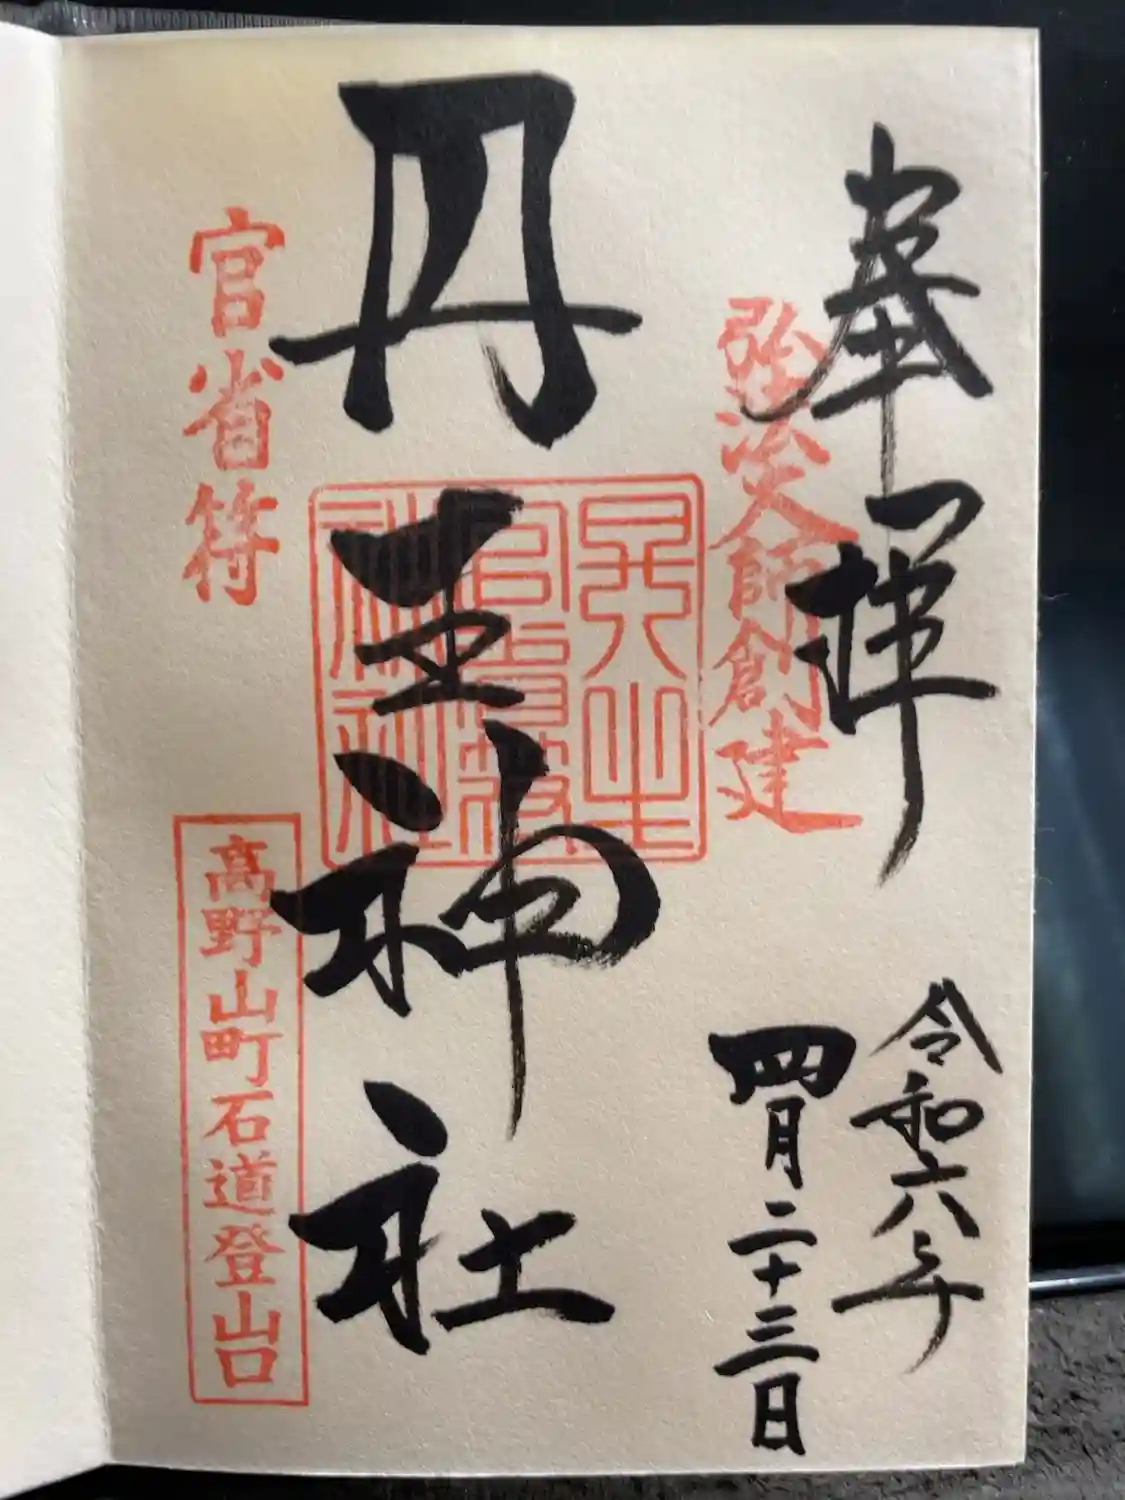 奉拝
弘法大師創建
令和六年
四月二十三日
丹生神社
丹生
官省符
神社
官省符
高野山町石道登山口